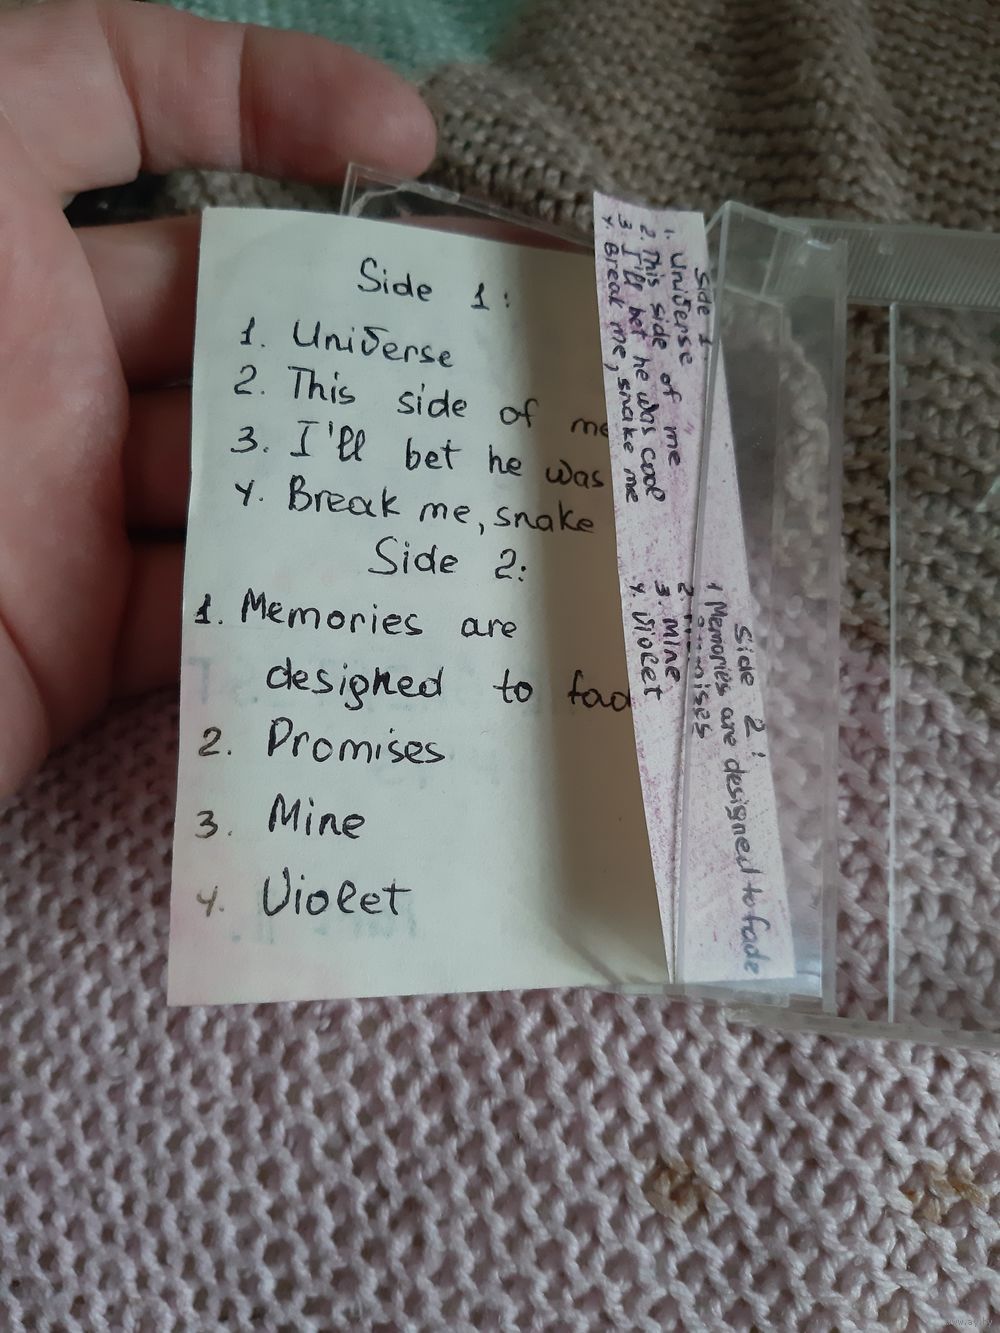 Side 1:
1. Universe
2. This side of me
3. I'll bet he was
4. Break me, snake
Side 2:
1. Memories are
designed to fad
2. Promises
3. Mine
4. Violet
Side 1:
1. Universe
2. This side of me
3. I'll bet he was cool
4. Break me, snake me
Side 2:
1 Memories are designed to fade
2. Promises
3. Mine
4. Violet
www.ay.by